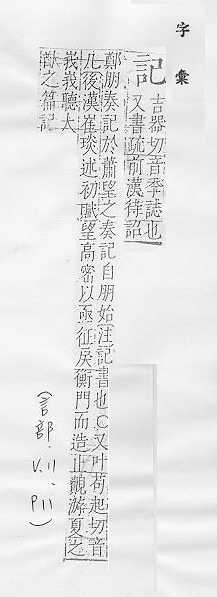 字彙
記
吉器切音季誌也
又書疏前漢待詔
鄭朋奏記於蕭望之奏記自朋始注記書也○又叶苟起切音
几後漢崔琰述初賦望高密以亟征戾衡門而造止觀游夏之
峩峩聽大
猷之篇記
(言部.V.11.P11)